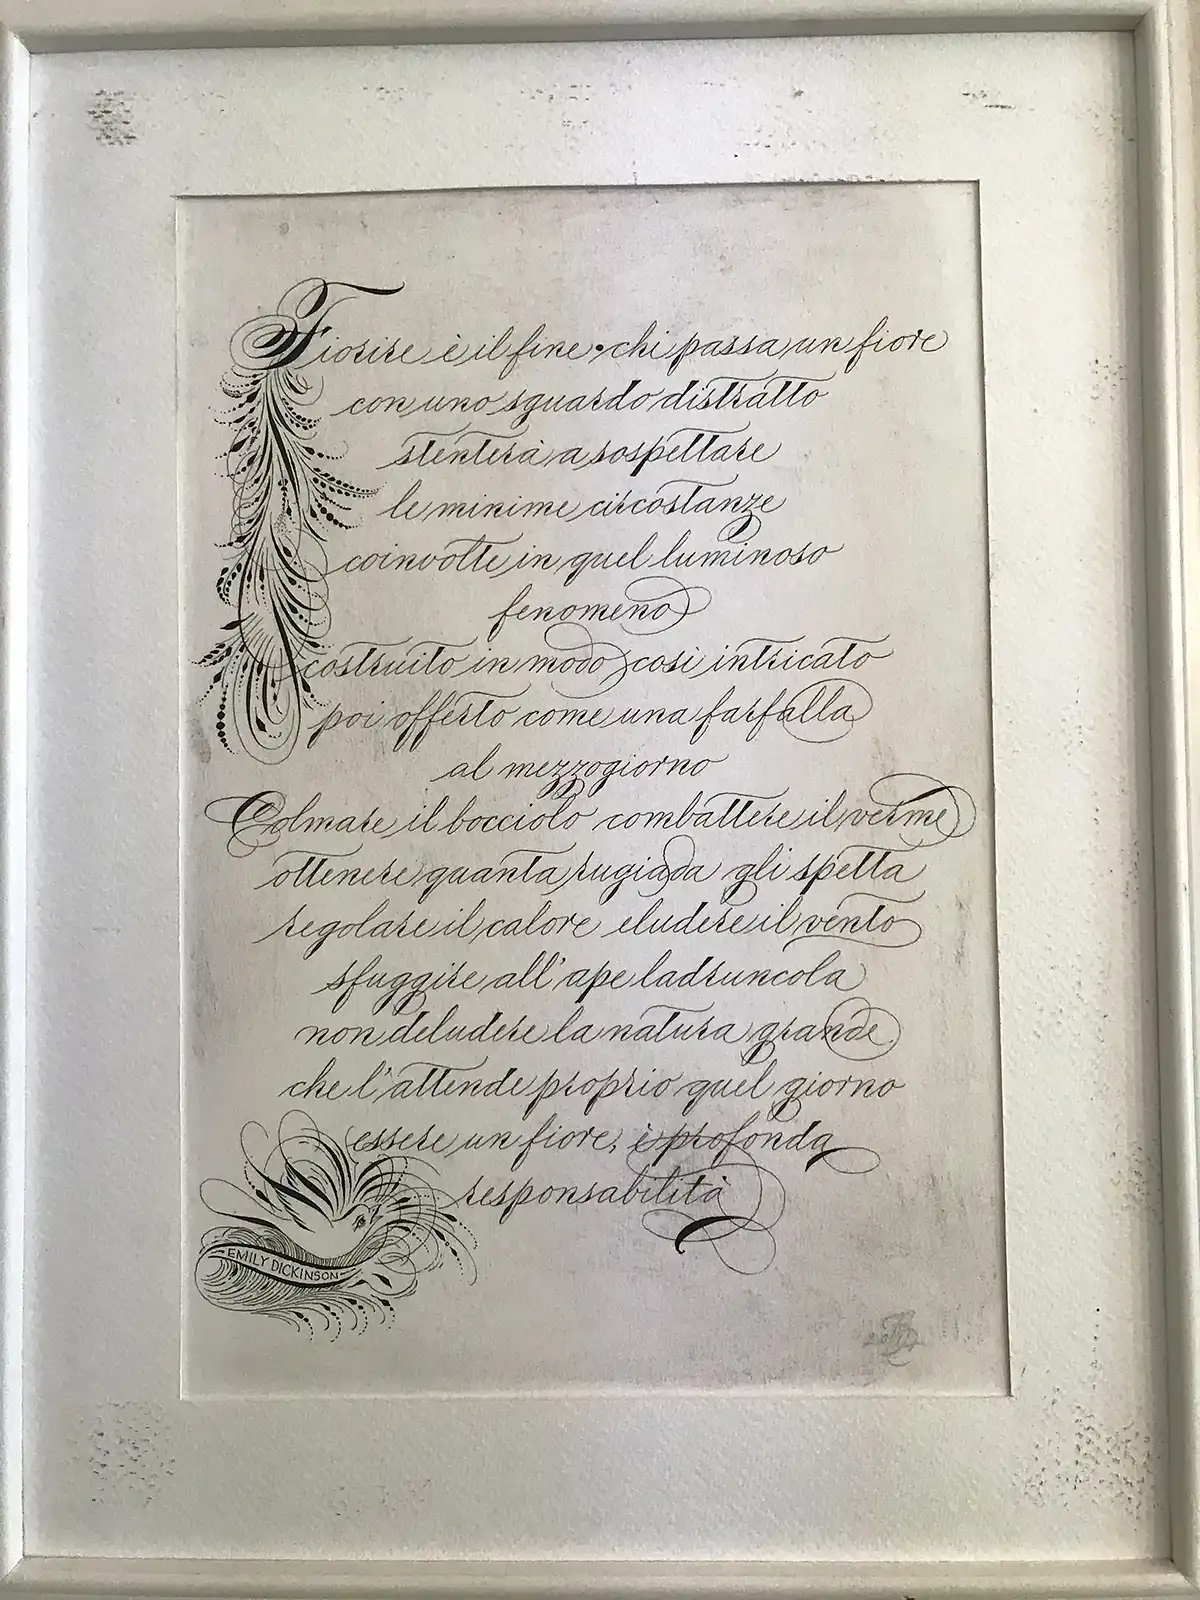 Fiorire è il fine • chi passa un fiore
con uno sguardo distratto
stenterà a sospettare
le minime circostanze
coinvolte in quel luminoso
fenomeno
costruito in modo così intricato
poi offerto come una farfalla
al mezzogiorno
Colmare il bocciolo combattere il verme
ottenere quanta rugiada gli spetta
regolare il calore eludere il vento
sfuggire all'ape ladruncola
non deludere la natura grande
che l'attende proprio quel giorno
essere un fiore, è profonda
responsabilità
EMILY DICKINSON